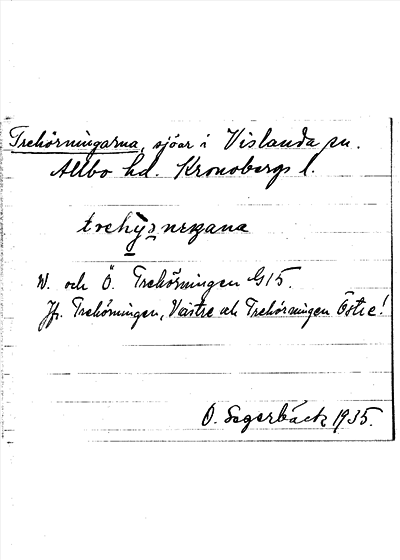 Trehörningarna, sjöar i Vislanda sn.
Allbo hd. Kronobergs l.
V. och Ö. Trehörningen G15.
Jfr. Trehörningen, Västre och Trehörningen Östre!
O. Sagerbäck 1935.